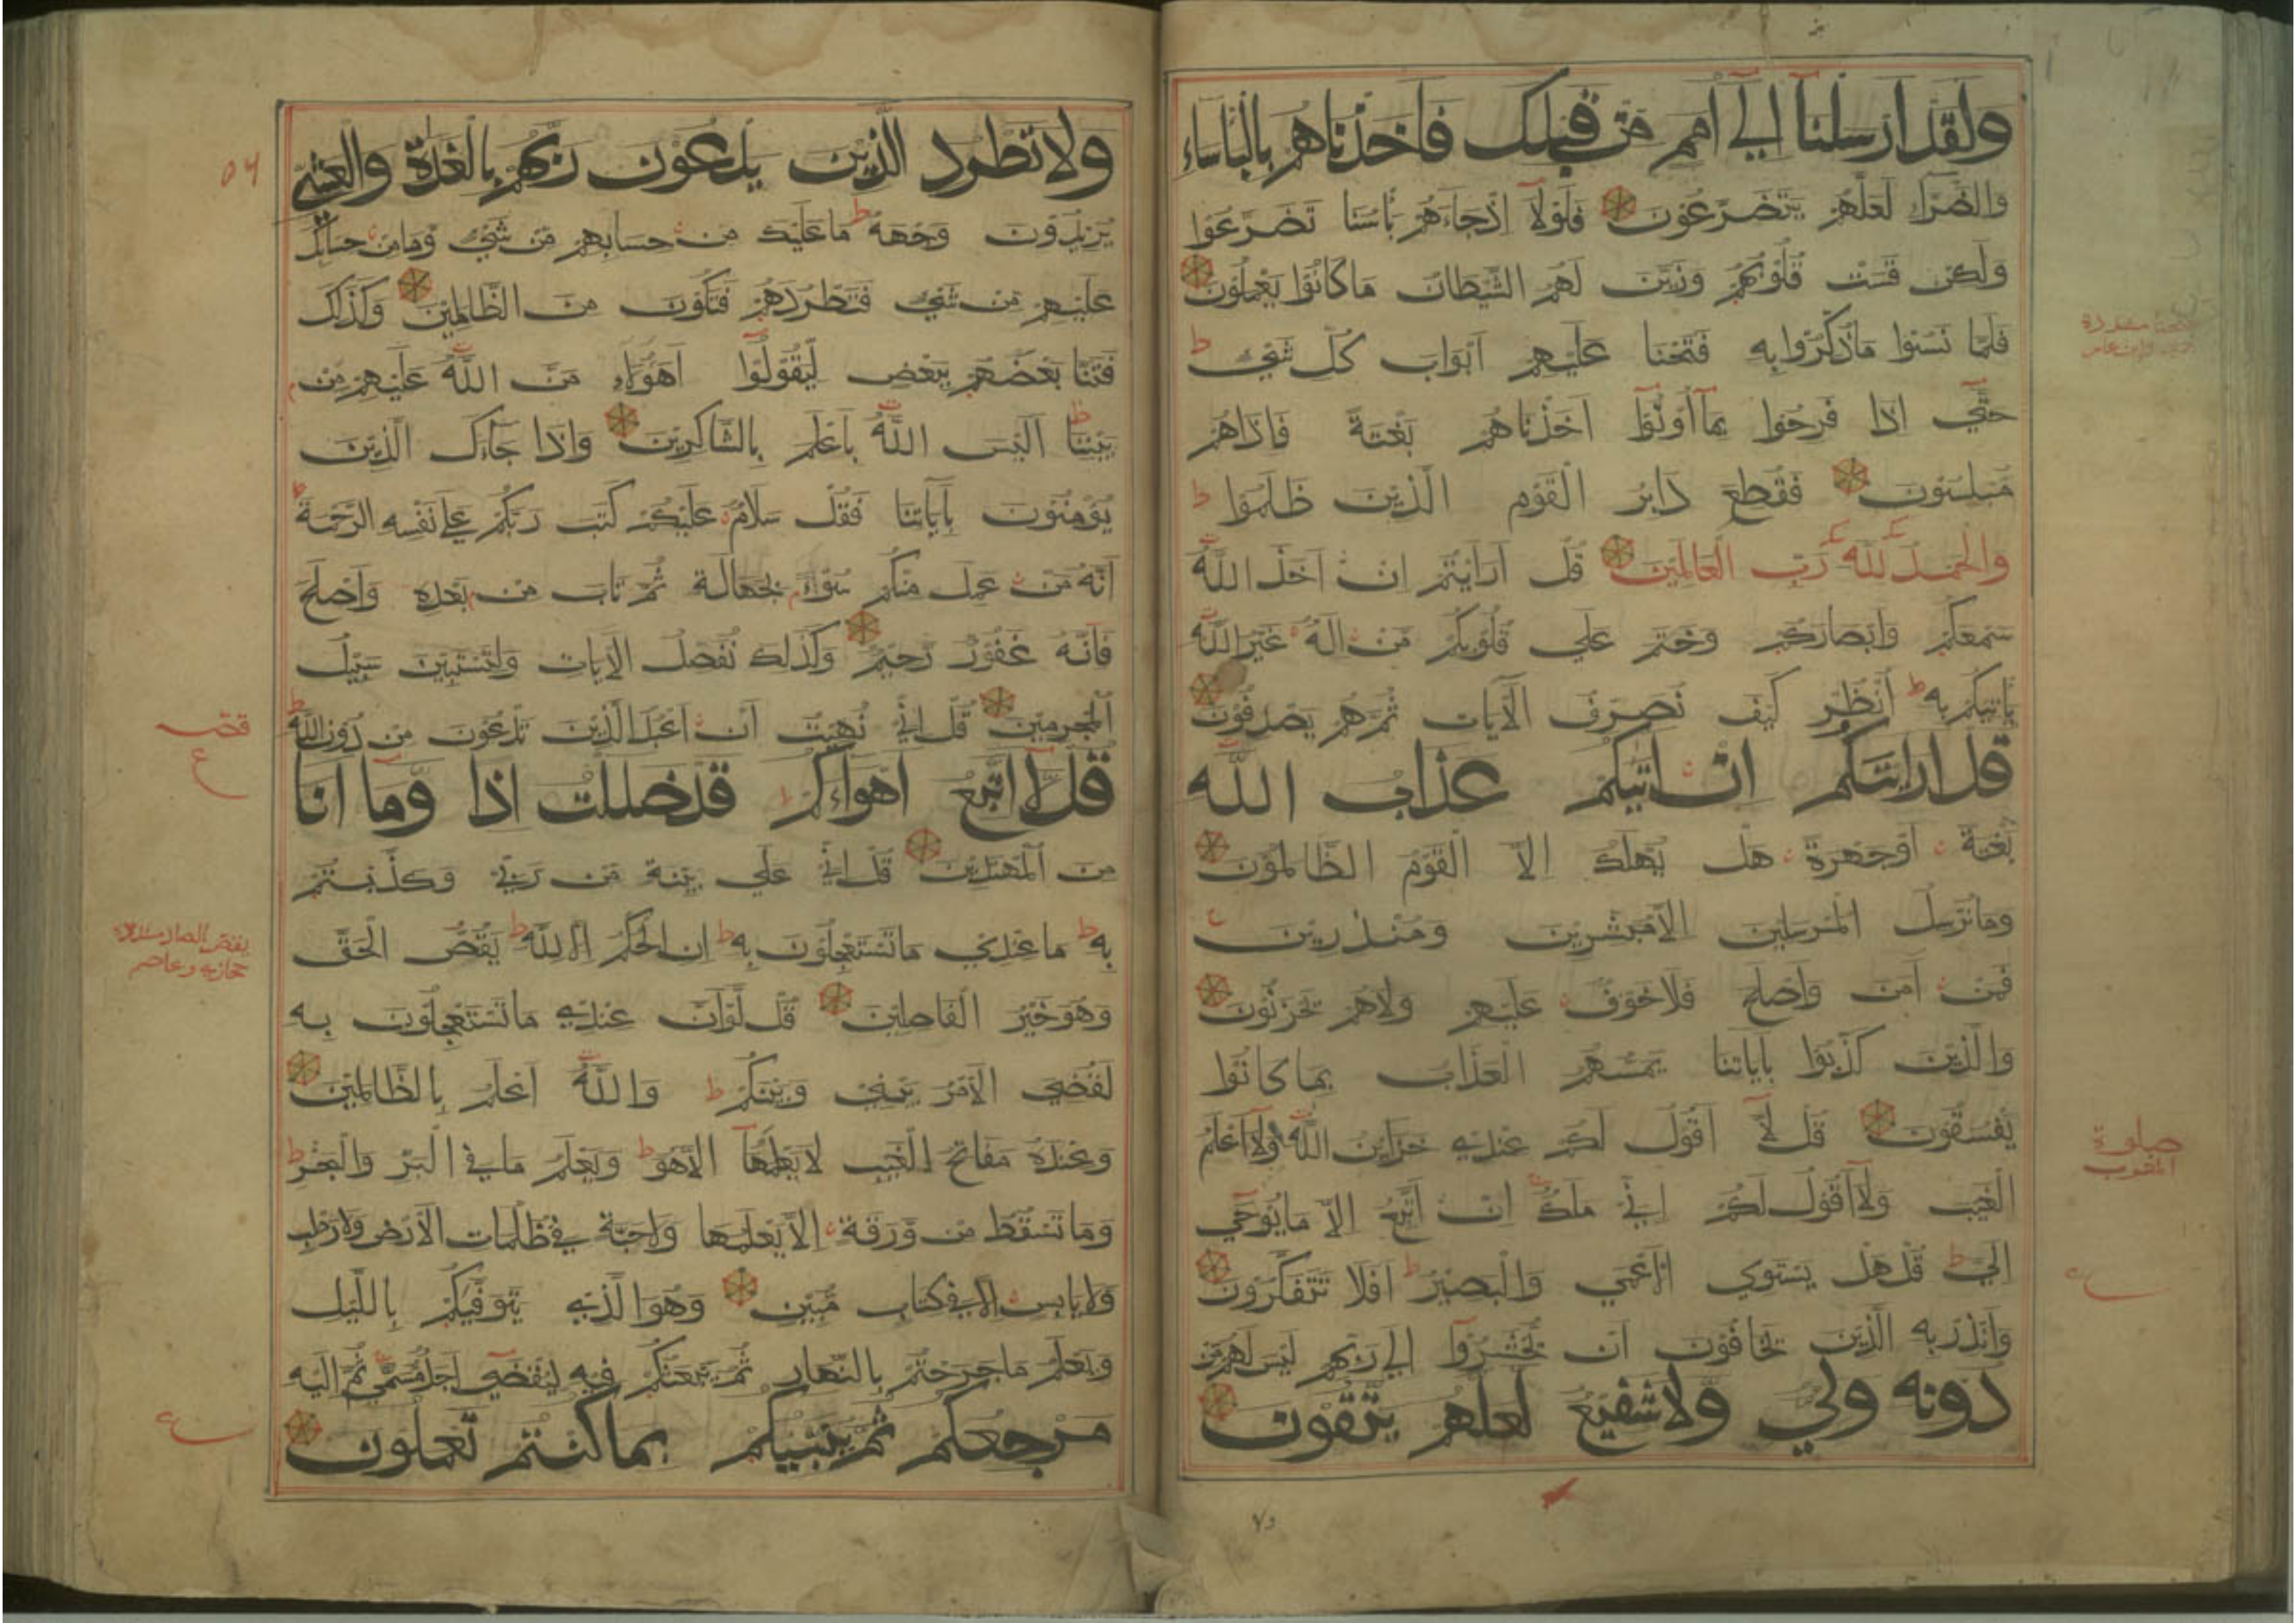 ولقد ارسلنا الي امم من قبلك فاخذناهم بالباساء
والضراء لعلهم يتضرعون فلولا اذجاءهم باسنا تضرعوا
ولكن قست قلوبهم وزين لهم الشيطان ماكانوا يعملون
فلما نسوا ماذكروا به فتحنا عليهم ابواب كل شئ ط
حتي اذا فرحوا بما اوتوا اخذناهم بغتة فاذاهم
مبلسون فقطع دابر القوم الذين ظلموا ط
والحمد لله رب العالمين قل ارايتم ان اخذ الله
سمعكم وابصاركم وختم علي قلوبكم من اله غير الله
ياتيكم به ط انظر كيف نصرف الآيات ثم هم يصدفون
قل ارايتكم ان اتيكم عذاب الله
بغتة اوجهرة هل يهلك الا القوم الظالمون
ومانرسل المرسلين الامبشرين ومنذرين
فمن آمن واصلح فلاخوف عليهم ولاهم يحزنون
والذين كذبوا بآياتنا يمسهم العذاب بما كانوا
يفسقون قل لا اقول لكم عندي خزاين الله ولا اعلم
الغيب ولا اقول لكم اني ملك ان اتبع الا مايوحي
الي ط قل هل يستوي الاعمي والبصير ط افلا تتفكرون
وانذر به الذين يخافون ان يحشروا الي ربهم ليس لهم من
دونه ولي ولاشفيع لعلهم يتقون
ع
ولاتطرد الذين يدعون ربهم بالغدوة والعشي
يريدون وجهه ط ماعليك من حسابهم من شئ ومامن حسابك
عليهم من شئ فتطردهم فتكون من الظالمين وكذلك
فتنا بعضهم ببعض ليقولوا اهؤلاء من الله عليهم من
بيننا ط اليس الله باعلم بالشاكرين واذا جاءك الذين
يؤمنون بآياتنا فقل سلام عليكم كتب ربكم علي نفسه الرحمة ط
انه من عمل منكم سوءا بجهالة ثم تاب من بعده واصلح
فانه غفور رحيم وكذلك نفصل الآيات ولتستبين سبيل
المجرمين قل اني نهيت ان اعبد الذين تدعون من دون الله ط
قل لا اتبع اهواءكم قدضللت اذا وما انا
من المهتدين قل اني علي بينة من ربي وكذبتم
به ط ماعندي ماتستعجلون به ط ان الحكم الا لله ط يقص الحق
وهوخير الفاصلين قل لوان عندي ماتستعجلون به
لقضي الامر بيني وبينكم ط والله اعلم بالظالمين
وعنده مفاتح الغيب لايعلمها الاهو ط ويعلم مافي البر والبحر ط
وماتسقط من ورقة الايعلمها ولاحبة في ظلمات الارض ولارطب
ولايابس الا في كتاب مبين وهوالذي يتوفيكم بالليل
ويعلم ماجرحتم بالنهار ثم يبعثكم فيه ليقضي اجل مسمي ثم اليه
مرجعكم ثم ينبئكم بما كنتم تعملون
ع